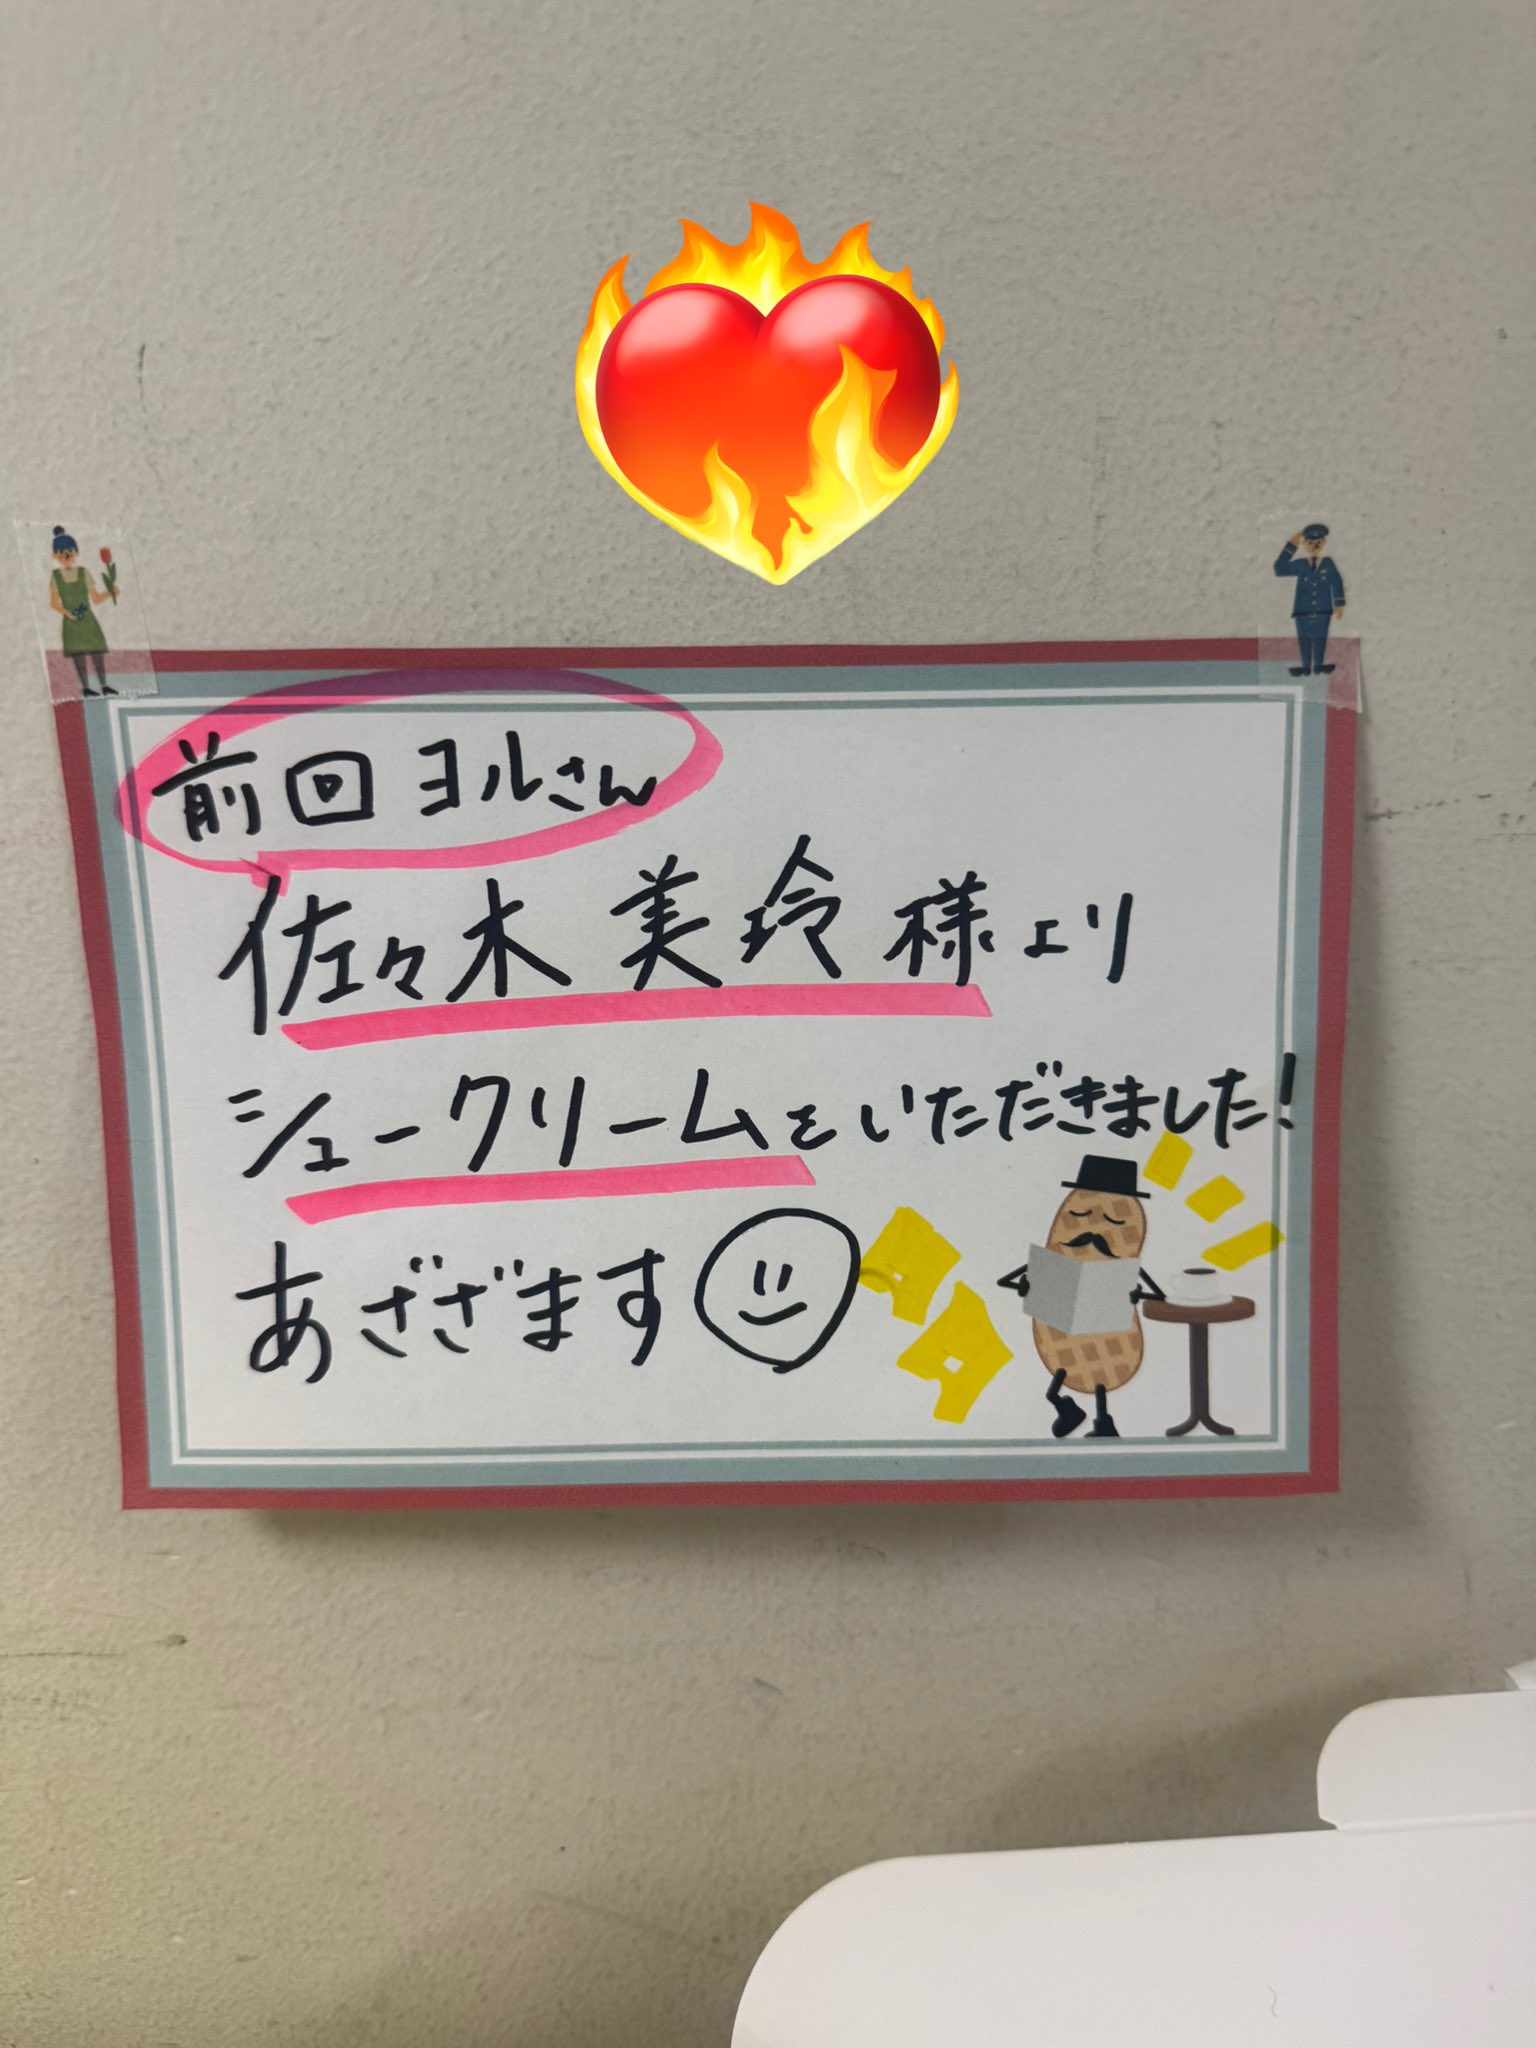 前回ヨルさん
佐々木美玲様より
シュークリームをいただきました!
あざざます